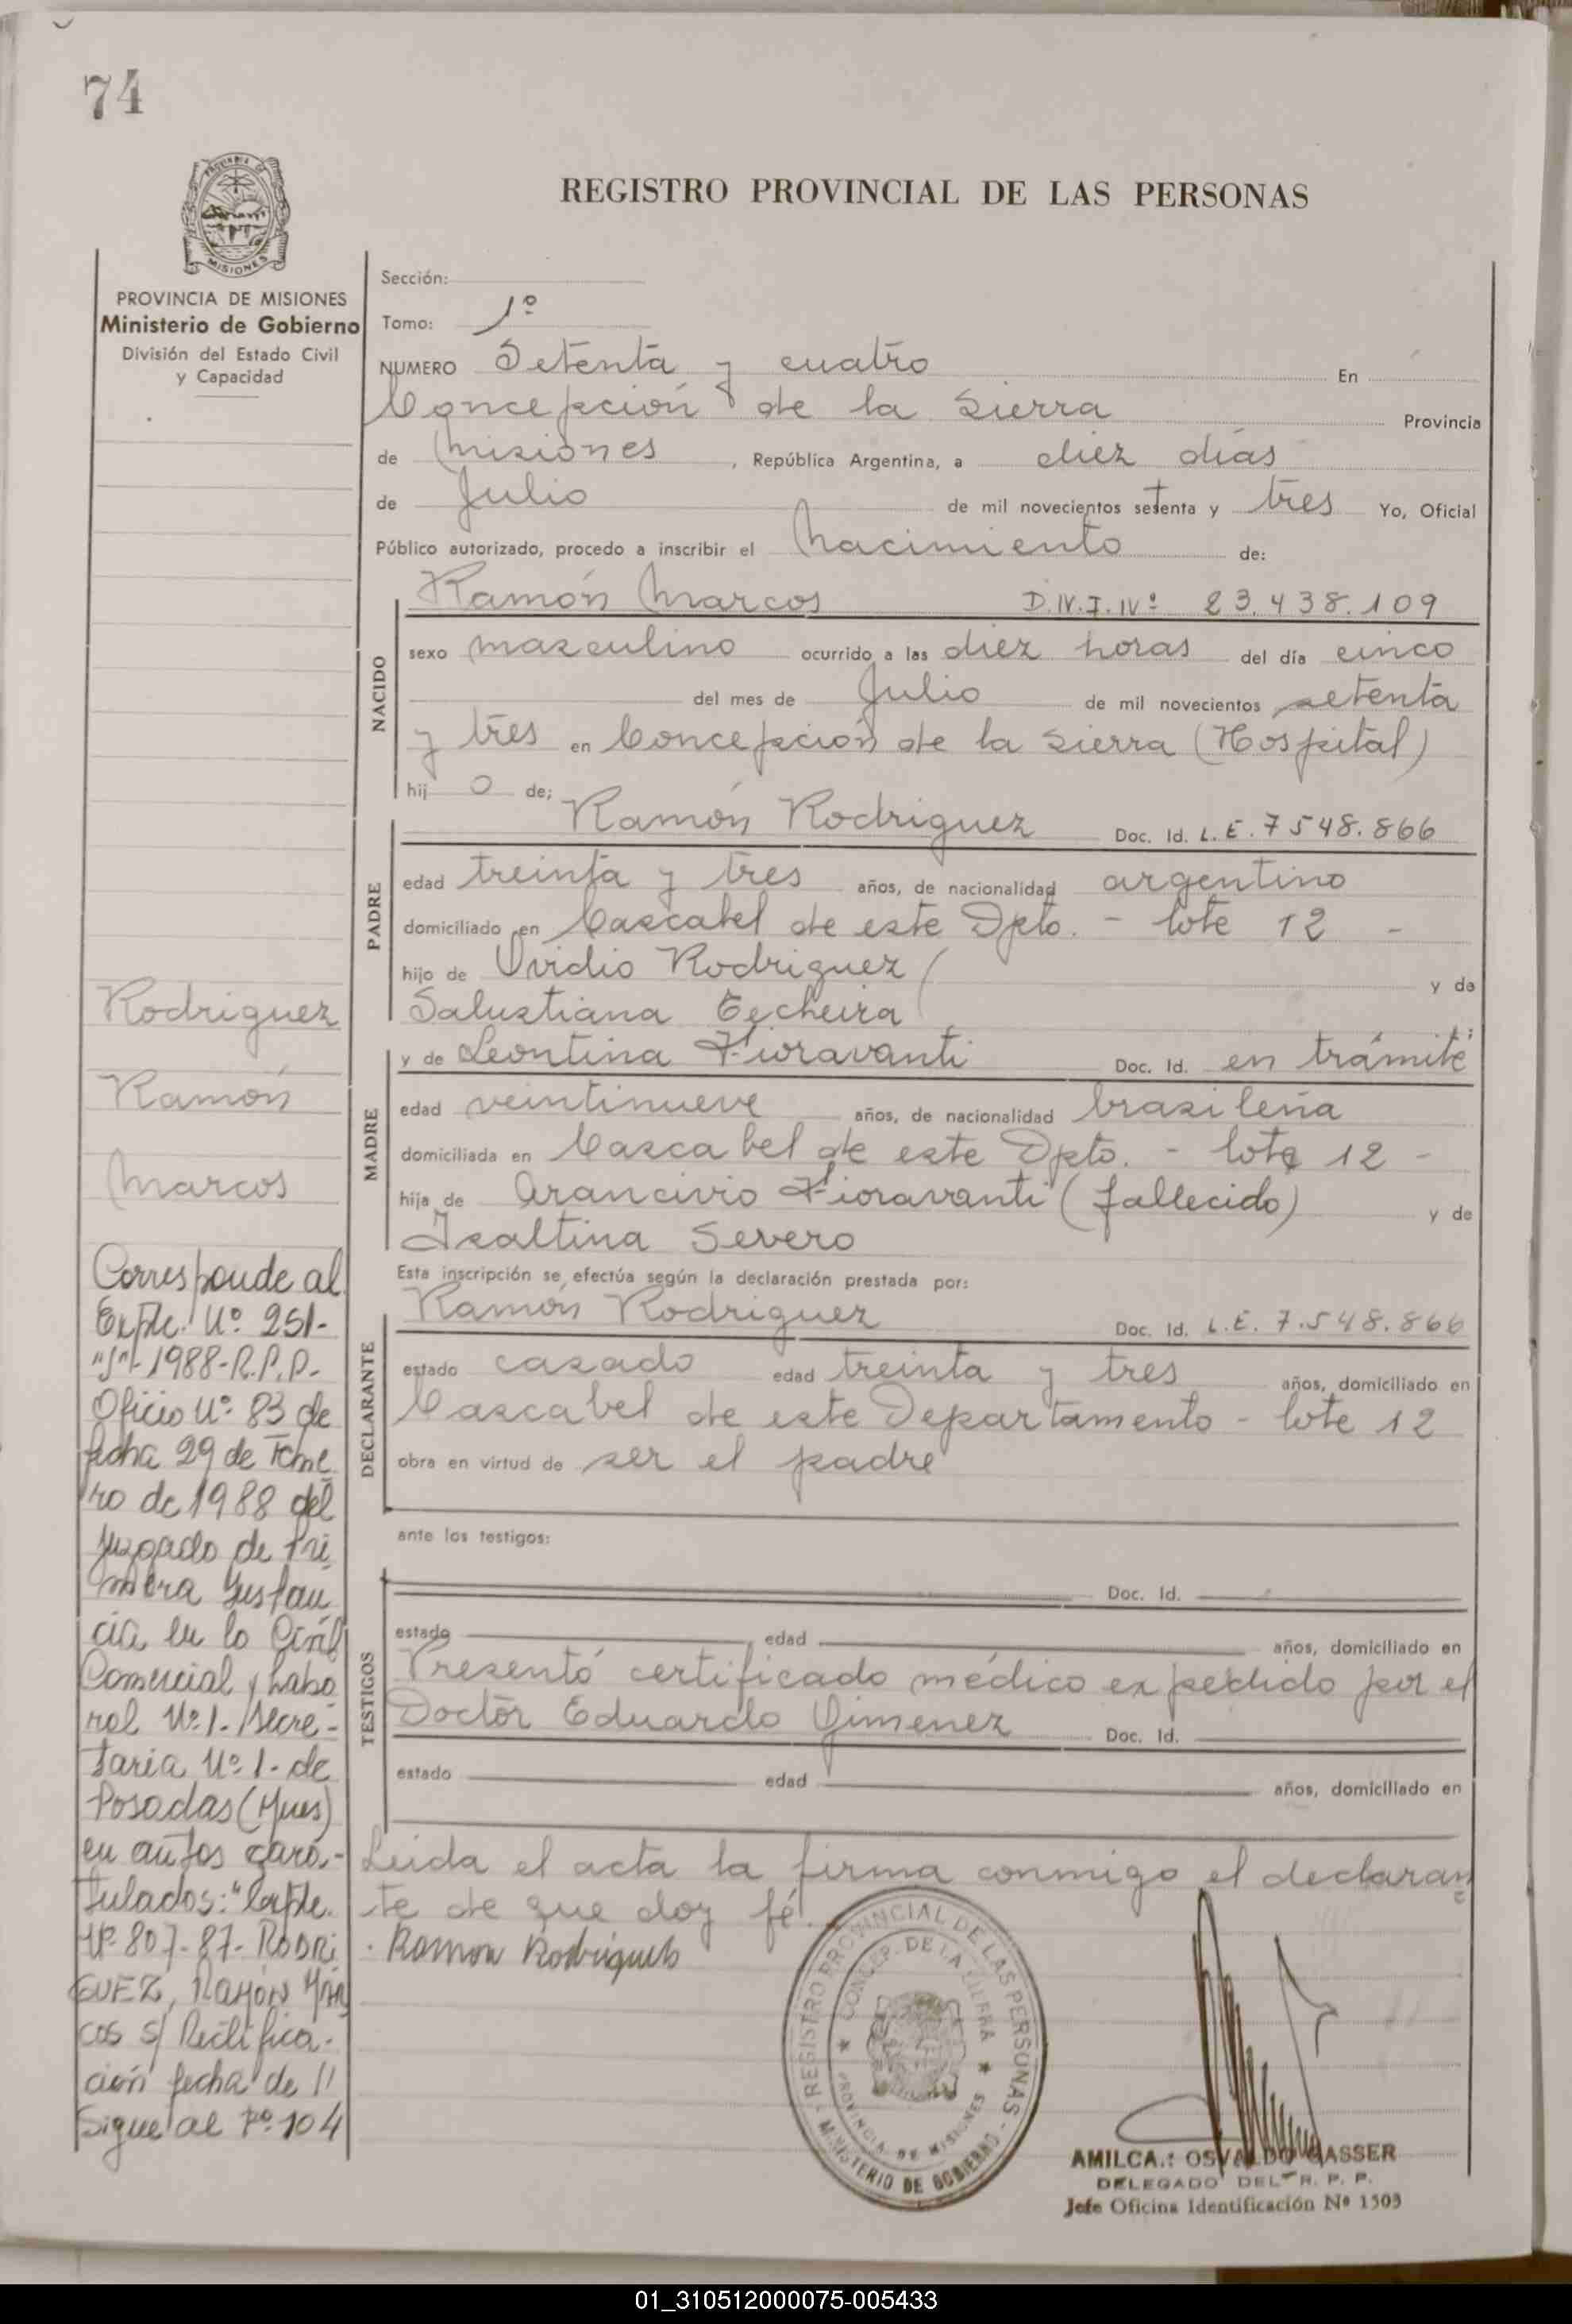 74
PROVINCIA DE
MISIONES
REGISTRO PROVINCIAL DE LAS PERSONAS
PROVINCIA DE MISIONES
Ministerio de Gobierno
División del Estado Civil
y Capacidad
Sección:
Tomo: 1º
NUMERO Setenta y cuatro En
Concepción de la Sierra Provincia
de Misiones, República Argentina, a diez días
de Julio de mil novecientos setenta y tres Yo, Oficial
Público autorizado, procedo a inscribir el nacimiento de:
NACIDO
Ramón Marcos D.N.I. Nº 23.438.109
sexo masculino ocurrido a las diez horas del día cinco
del mes de Julio de mil novecientos setenta
y tres en Concepción de la Sierra (Hospital)
hij o de;
PADRE
Ramón Rodriguez Doc. Id. L.E. 7548.866
edad treinta y tres años, de nacionalidad argentino
domiciliado en Cascabel de este Dpto. - lote 12 -
hijo de Ovidio Rodriguez y de
Salustiana Techeira
MADRE
y de Leontina Fioravanti Doc. Id. en trámite
edad veintinueve años, de nacionalidad brasileña
domiciliada en Cascabel de este Dpto. - lote 12 -
hija de Arancivio Fioravanti (fallecido) y de
Isaltina Severo
Esta inscripción se efectúa según la declaración prestada por:
DECLARANTE
Ramón Rodriguez Doc. Id. L.E. 7.548.866
estado casado edad treinta y tres años, domiciliado en
Cascabel de este Departamento - lote 12
obra en virtud de ser el padre
ante los testigos:
TESTIGOS
Doc. Id.
estado edad años, domiciliado en
Presentó certificado médico expedido por el
Doctor Eduardo Gimenez Doc. Id.
estado edad años, domiciliado en
Leida el acta la firma conmigo el declaran
te de que doy fé.
Ramon Rodrigues
Rodriguez
Ramón
Marcos
Corresponde al
Expte. Nº 251-
1988-R.P.P.-
Oficio Nº 83 de
fecha 29 de Febre
ro de 1988 del
Juzgado de Pri
mera Instan
cia en lo Civil
Comercial y Labo
ral Nº 1. Secre-
taria Nº 1. de
Posadas (Mnes)
en autos cara-
tulados: "Expte.
Nº 807-87- RODRI
GUEZ, RAMÓN MAR
COS s/ Rectifica-
ción fecha de
Sigue al Fº 104
REGISTRO PROVINCIAL DE LAS PERSONAS - MINISTERIO DE GOBIERNO -
CONCEP. DE LA SIERRA
PROVINCIA DE MISIONES
AMILCA.: OSVALDO GASSER
DELEGADO DEL R. P. P.
Jefe Oficina Identificación Nº 1503
01_310512000075-005433